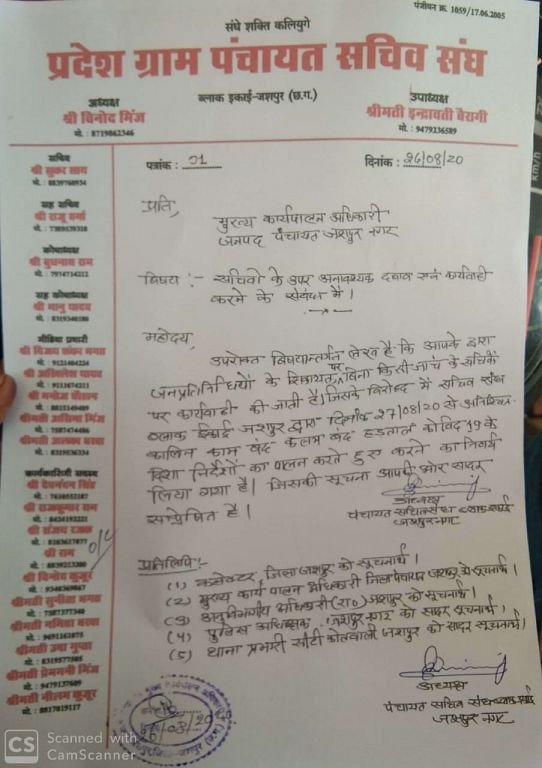 पंजीयन क्र. 1059/17.06.2005
संघे शक्ति कलियुगे
प्रदेश ग्राम पंचायत सचिव संघ
ब्लाक इकाई-जशपुर (छ.ग.)
अध्यक्ष
श्री विनोद मिंज
मो. : 8719862346
उपाध्यक्ष
श्रीमती इन्द्रावती बैरागी
मो. : 9479236589
पत्रांक : 01
दिनांक : 26/08/20
सचिव
श्री सुकर साय
मो. : 8839760934
सह सचिव
श्री राजू वर्मा
मो. : 7389539318
कोषाध्यक्ष
श्री बुधनाथ राम
मो. : 7974714212
सह कोषाध्यक्ष
श्री भानु यादव
मो. : 8319340188
मीडिया प्रभारी
श्री विजय शंकर भगत
मो. : 9121484234
श्री अखिलेश यादव
मो. : 9111674211
श्री मनोज चौहान
मो. : 8815149489
श्रीमती अलिमा मिंज
मो. : 7587474486
श्रीमती अलका बरवा
मो. : 8319836334
कार्यकारिणी सदस्य
श्री देवनंदन सिंह
मो. : 7630552187
श्री राजकुमार राम
मो. : 8424192221
श्री संजय टाडक
मो. : 8103617077
श्री राम
मो. : 8839213200
श्री विनोद कुजूर
मो. : 9340369867
श्रीमती सुनीता भगत
मो. : 7587377340
श्रीमती नमिता बरवा
मो. : 9691163875
श्रीमती उषा गुप्ता
मो. : 8319577505
श्रीमती प्रेममनी मिंज
मो. : 9479137609
श्रीमती नीलम कुजूर
मो. : 8817819117
प्रति,
मुख्य कार्यपालन अधिकारी
जनपद पंचायत जशपुर नगर
विषय :- सचिवों के उपर अनावश्यक दबाव एवं कार्यवाही
करने के संबंध में।
महोदय,
उपरोक्त विषयान्तर्गत लेख है कि आपके द्वारा
जनप्रतिनिधियों के शिकायत पर बिना किसी जांच के सचिवों
पर कार्यवाही की जाती है। जिसके विरोध में सचिव संघ
ब्लाक ईकाई जशपुर द्वारा दिनांक 27/08/20 से अनिश्चित
कालिन काम बंद कलम बंद हड़ताल कोविद 19 के
दिशा निर्देशों का पालन करते हुए करने का निर्णय
लिया गया है। जिसकी सूचना आपकी ओर सादर
सम्प्रेषित है।
अध्यक्ष
पंचायत सचिव संघ ब्लाक ईकाई
जशपुर नगर
प्रतिलिपि:-
(1) कलेक्टर जिला जशपुर को सूचनार्थ।
(2) मुख्य कार्य पालन अधिकारी जिला पंचायत जशपुर को सूचनार्थ।
(3) अनुविभागीय अधिकारी (रा०) जशपुर को सूचनार्थ।
(4) पुलिस अधिक्षक जशपुर नगर को सादर सूचनार्थ।
(5) थाना प्रभारी सीटी कोतवाली जशपुर को सादर सूचनार्थ।
अध्यक्ष
पंचायत सचिव संघ ब्लाक ईकाई
जशपुर नगर
CS Scanned with
CamScanner